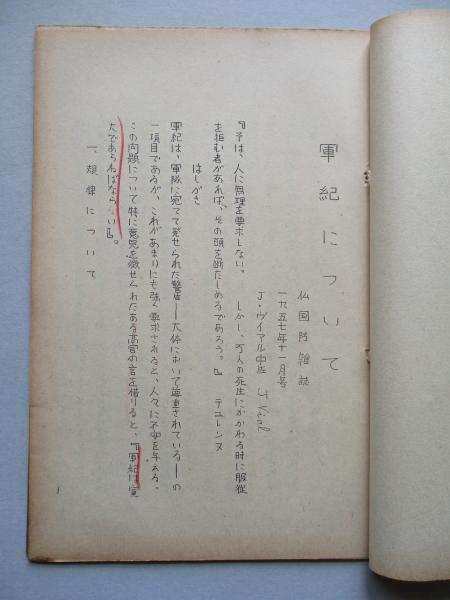 軍紀について
仏国防雑誌
一九五七年十一月号
J・ヴィアル中佐 J Vial
『予は、人に無理を要求しない。しかし、万人の死生にかかわる時に服従
を拒む者があれば、その頭を断たしめるであろう。』 テュレンヌ
はしがき
軍紀は、軍隊に宛てて発せられた警告──大体において尊重されている──の
一項目であるが、これがあまりにも強く要求されると、人々に不安を与える。
この問題について特に意見を徴せられたある高官の言を借りると、『軍紀は寛
大であらねばならない』。
一、規律について